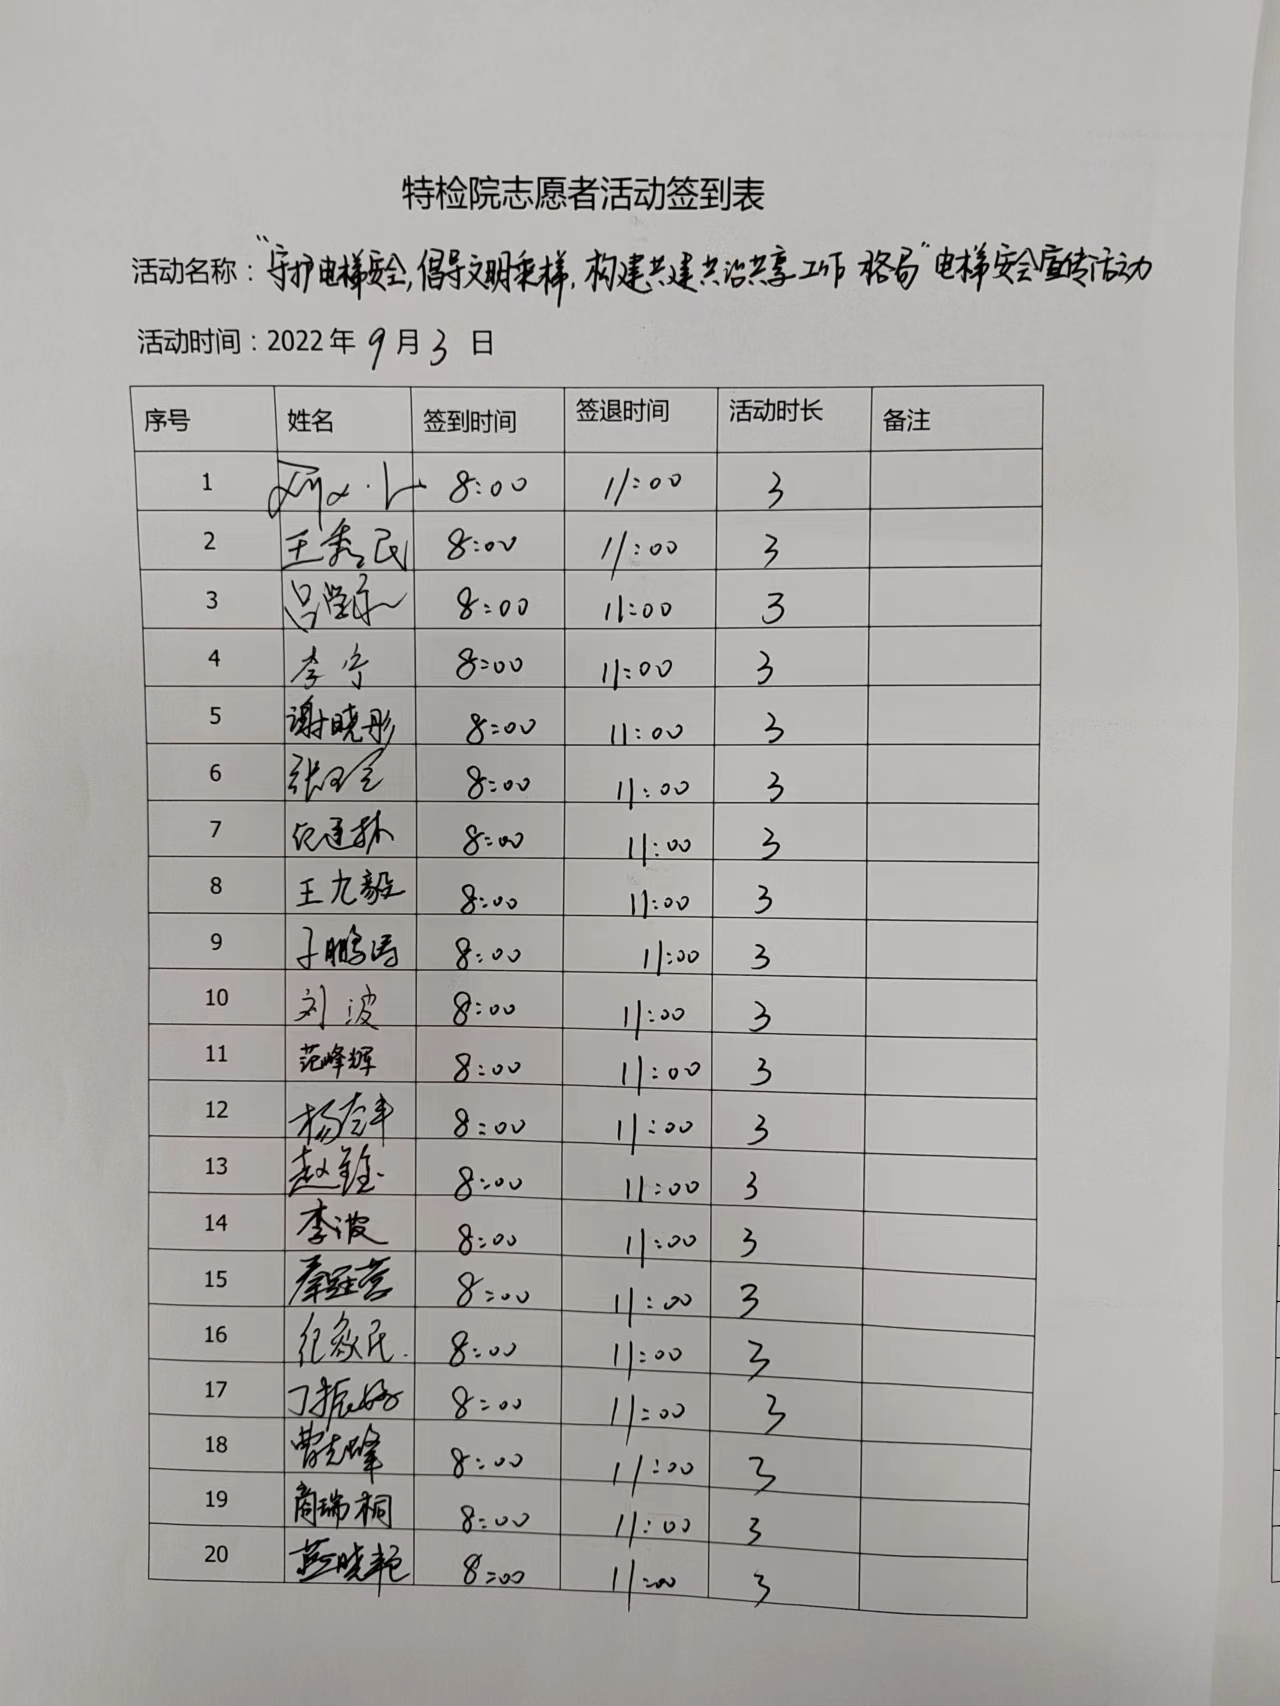 特检院志愿者活动签到表
活动名称："守护电梯安全,倡导文明乘梯,构建共建共治共享工作格局"电梯安全宣传活动
活动时间：2022年9月3日
序号 姓名 签到时间 签退时间 活动时长 备注
1 8:00 11:00 3
2 王秀民 8:00 11:00 3
3 吕 8:00 11:00 3
4 李宁 8:00 11:00 3
5 谢晓彤 8:00 11:00 3
6 张 8:00 11:00 3
7 纪 8:00 11:00 3
8 王九毅 8:00 11:00 3
9 于鹏涛 8:00 11:00 3
10 刘波 8:00 11:00 3
11 范峰辉 8:00 11:00 3
12 杨 8:00 11:00 3
13 赵 8:00 11:00 3
14 李波 8:00 11:00 3
15 秦冠营 8:00 11:00 3
16 纪效民 8:00 11:00 3
17 丁振 8:00 11:00 3
18 曹克峰 8:00 11:00 3
19 商瑞桐 8:00 11:00 3
20 晓艳 8:00 11:00 3